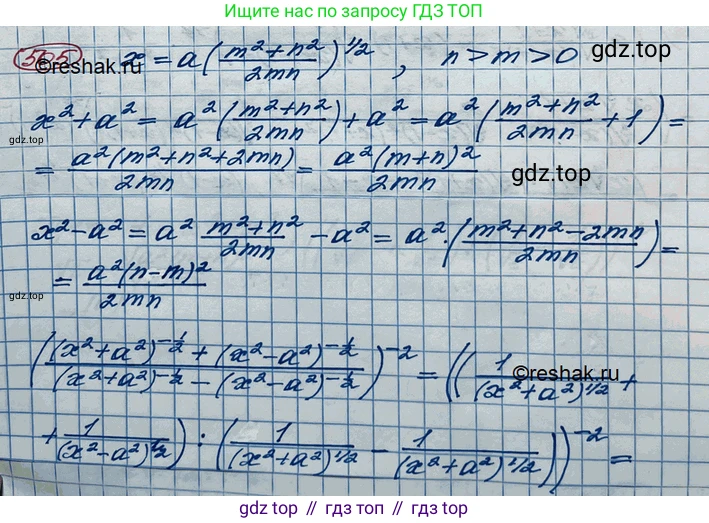 Ищите нас по запросу ГДЗ ТОП
565 x = a(\frac{m²+n²}{2mn})^{1/2}, n > m > 0
©reshak.ru
gdz.top
x²+a² = a²(\frac{m²+n²}{2mn})+a² = a²(\frac{m²+n²}{2mn}+1) =
gdz.top
= \frac{a²(m²+n²+2mn)}{2mn} = \frac{a²(m+n)²}{2mn}
gdz.top
x²-a² = a² \frac{m²+n²}{2mn} - a² = a²·(\frac{m²+n²-2mn}{2mn}) =
= \frac{a²(n-m)²}{2mn}
gdz.top
(\frac{(x²+a²)^{-\frac{1}{2}} + (x²-a²)^{-\frac{1}{2}}}{(x²+a²)^{-\frac{1}{2}} - (x²-a²)^{-\frac{1}{2}}})^{-2} = ((\frac{1}{(x²+a²)^{1/2}} +
©reshak.ru
+ \frac{1}{(x²-a²)^{1/2}}) : (\frac{1}{(x²+a²)^{1/2}} - \frac{1}{(x²+a²)^{1/2}}))^{-2} =
gdz.top // гдз топ // gdz.top